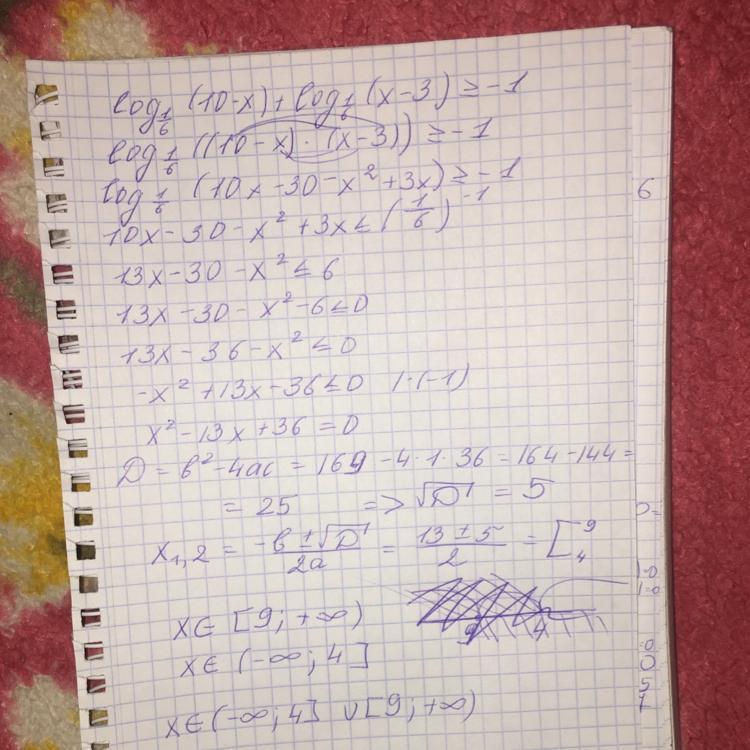 log 1/6 (10-x) + log 1/6 (x-3) ≥ -1
log 1/6 ((10-x)·(x-3)) ≥ -1
log 1/6 (10x-30-x² +3x) ≥ -1
10x-30-x² +3x ≤ (1/6)^-1
13x-30-x² ≤ 6
13x-30-x²-6 ≤ 0
13x-36-x² ≤ 0
-x² +13x-36 ≤ 0 |·(-1)
x²-13x+36 = 0
D = b²-4ac = 169-4·1·36 = 164-144 =
= 25 => √D = 5
x1,2 = (-b±√D)/2a = (13±5)/2 = [9 4
x∈ [9; +∞)
9 4
x∈ (-∞; 4]
x∈ (-∞; 4] ∪ [9; +∞)
6